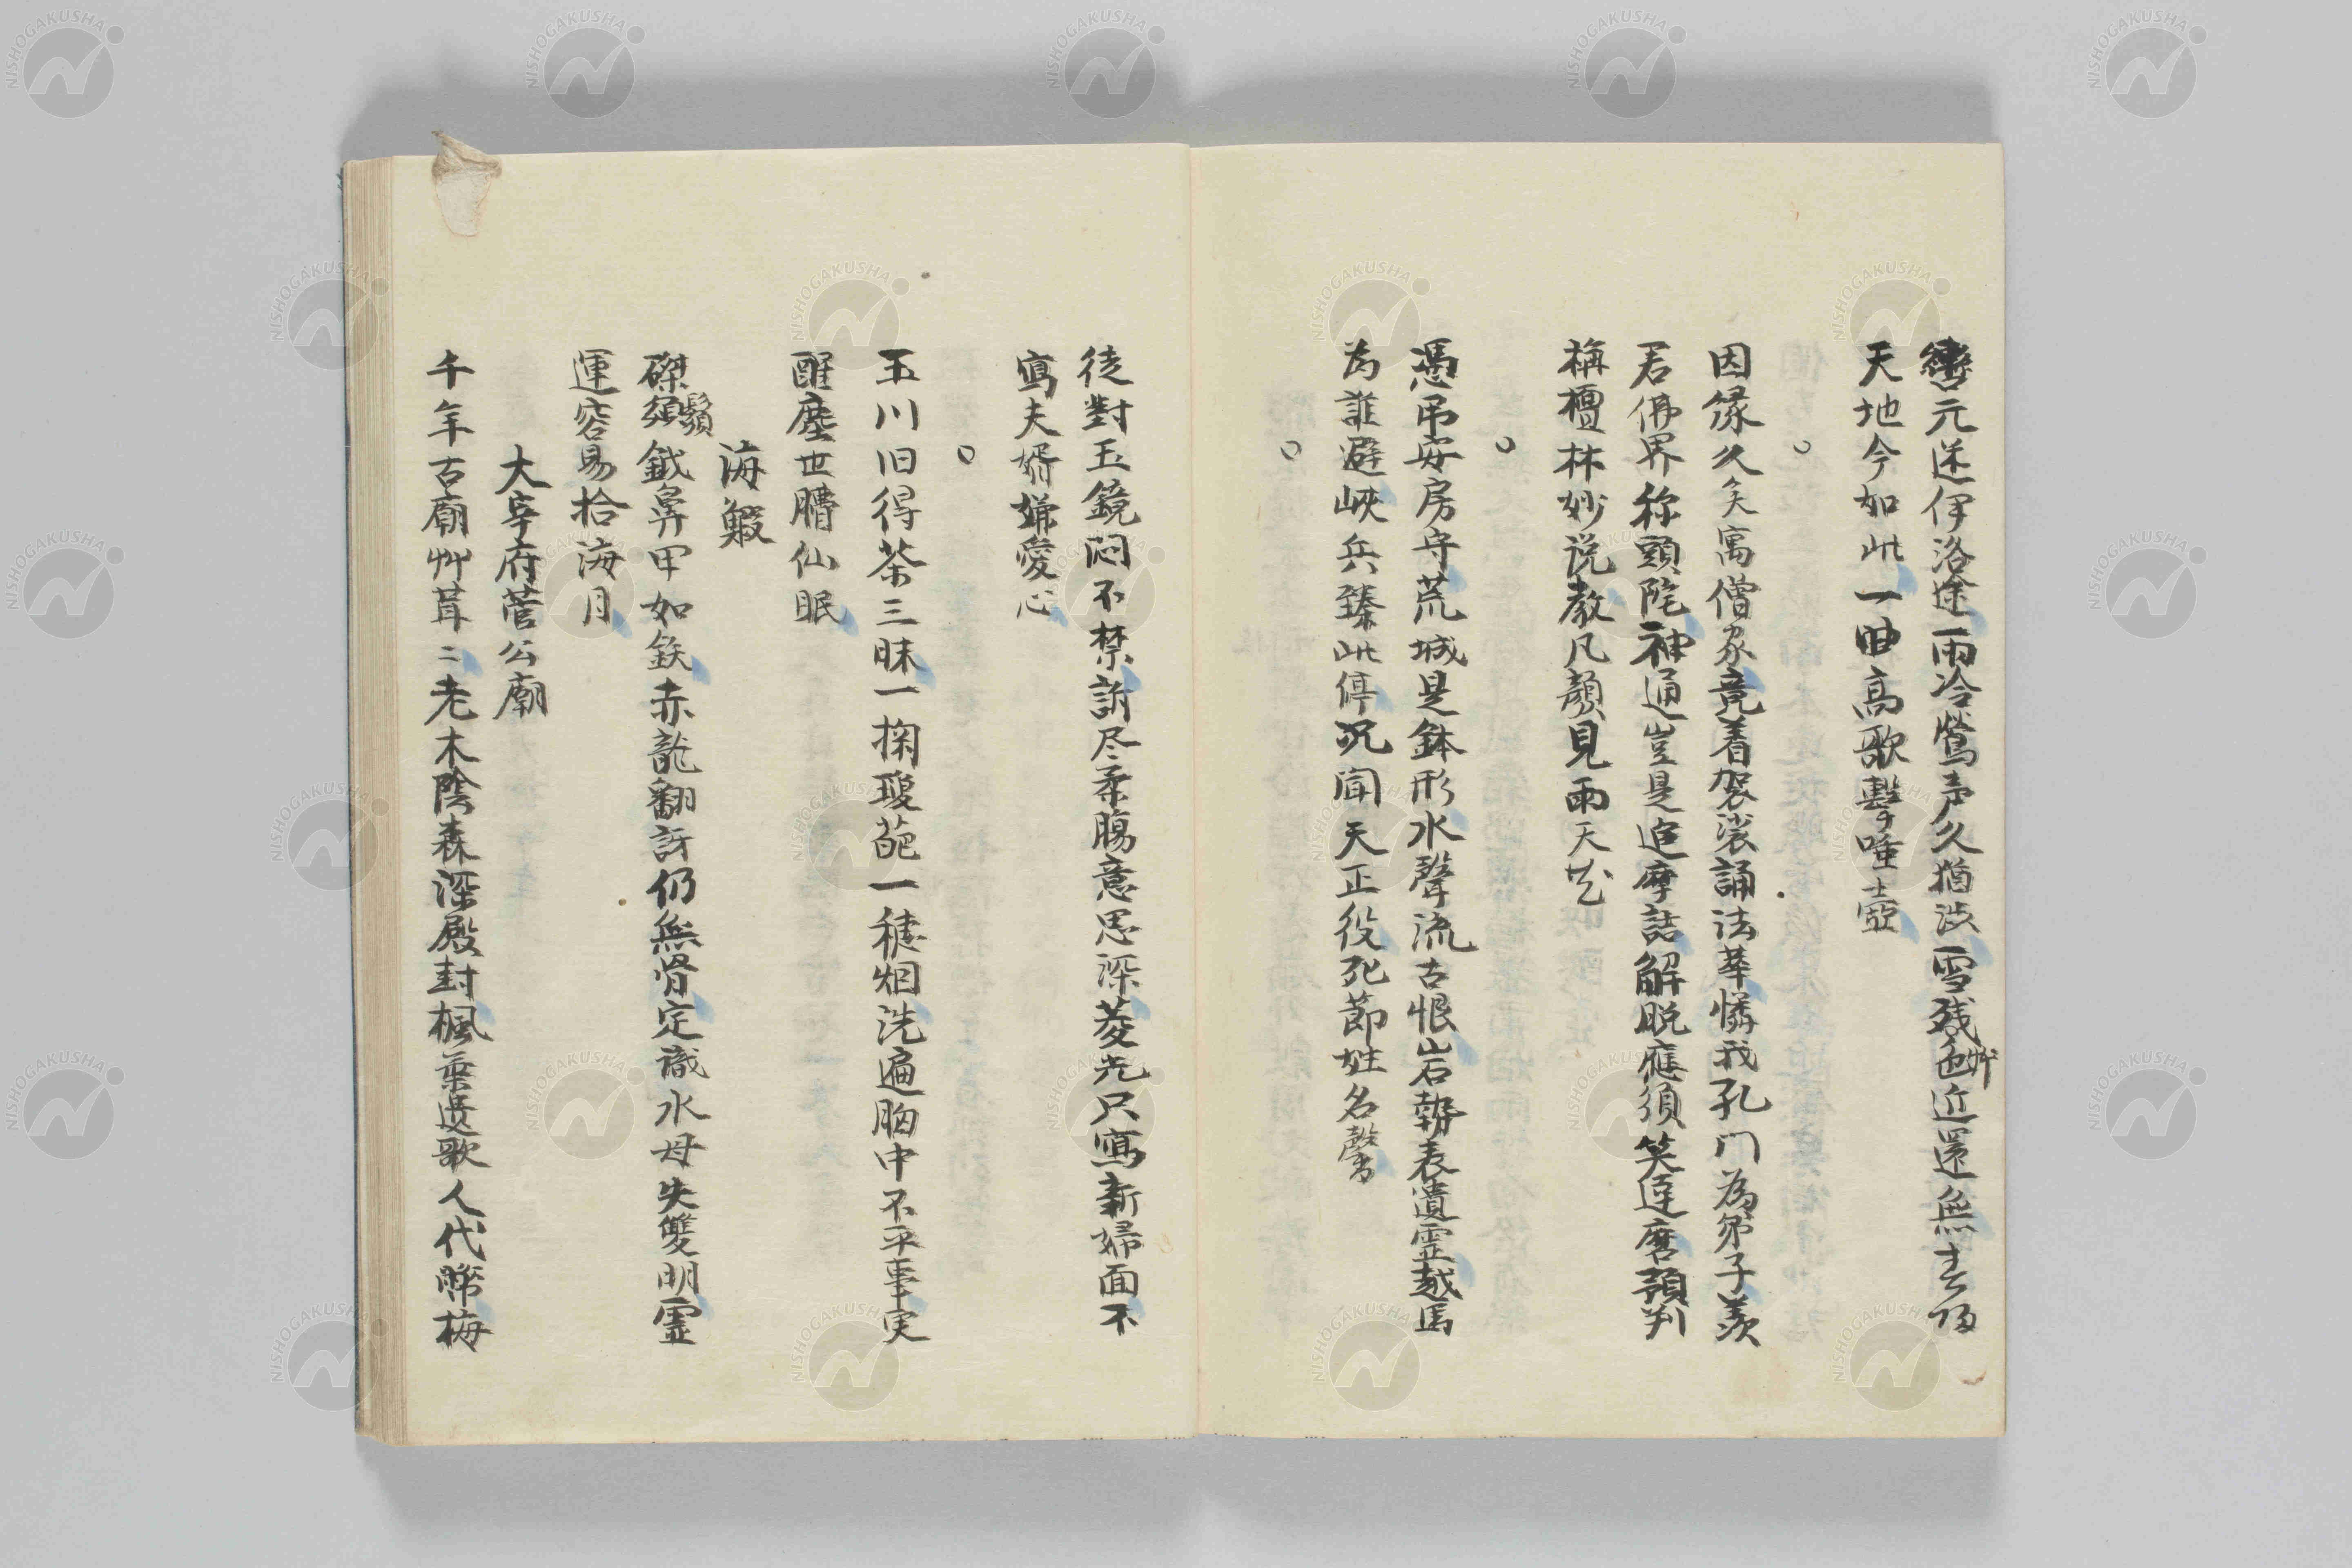 轡元送伊洛途雨冷鶯声久猶渋雪残艸色近還無去留
天地今如此一曲高歌擊唾壺
○
因縁久矣寓僧家竟着袈裟誦法華憐我孔门為弟子羨
君佛界称頭陀神通豈是追摩詰解脱應須笑達磨預判
栴檀林妙说教凡顏見雨天花
○
馮吊安房守荒城是鉢形水聲流古恨岩勢表遺霊越馬
为誰避峽兵臻此停况聞天正役死節姓名馨
○
徒對玉鏡悶不禁訴尽柔腸意思深菱光只寫新婦面不
寫夫婿嬾愛心
○
玉川旧得茶三昧一掬瓊葩一穗烟洗遍胸中不平事実
醒塵世腊仙眠
海鰕
磔鬚鉞鼻甲如鉄赤龍翻訝仍無骨定識水母失雙明霊
運容易拾海月
大宰府菅公廟
千年古廟艸茸〻老木陰森深殿封楓葉遺歌人代晞梅